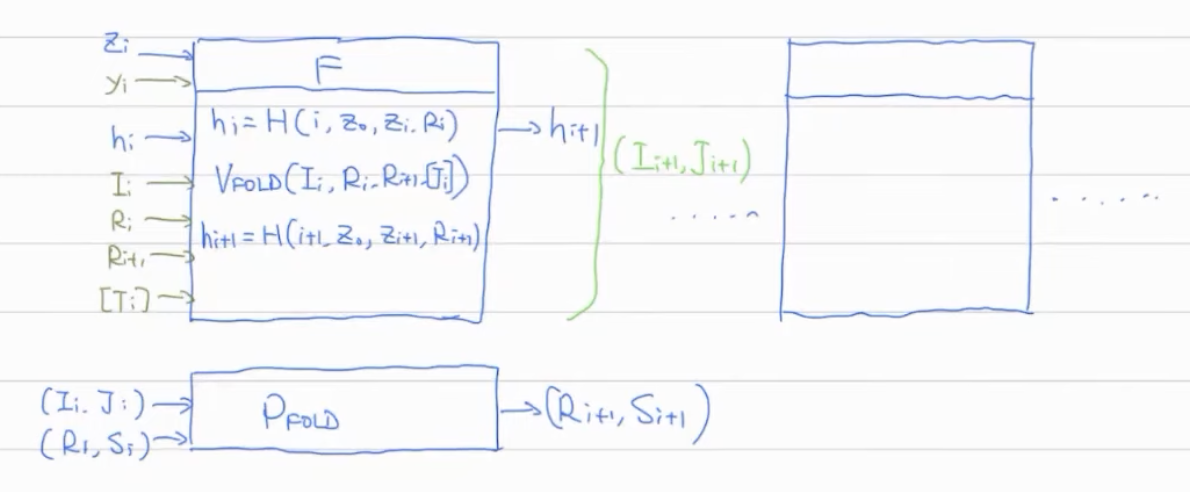 Zi
yi
hi
Ii
Ri
Ri+1
[Ti]
F
hi = H(i, Z0, Zi. Ri)
VFOLD(Ii, Ri. Ri+1. [Ji])
hi+1 = H(i+1. Z0, Zi+1, Ri+1)
hi+1
(Ii+1, Ji+1)
......
......
(Ii. Ji)
(Ri, Si)
PFOLD
(Ri+1, Si+1)